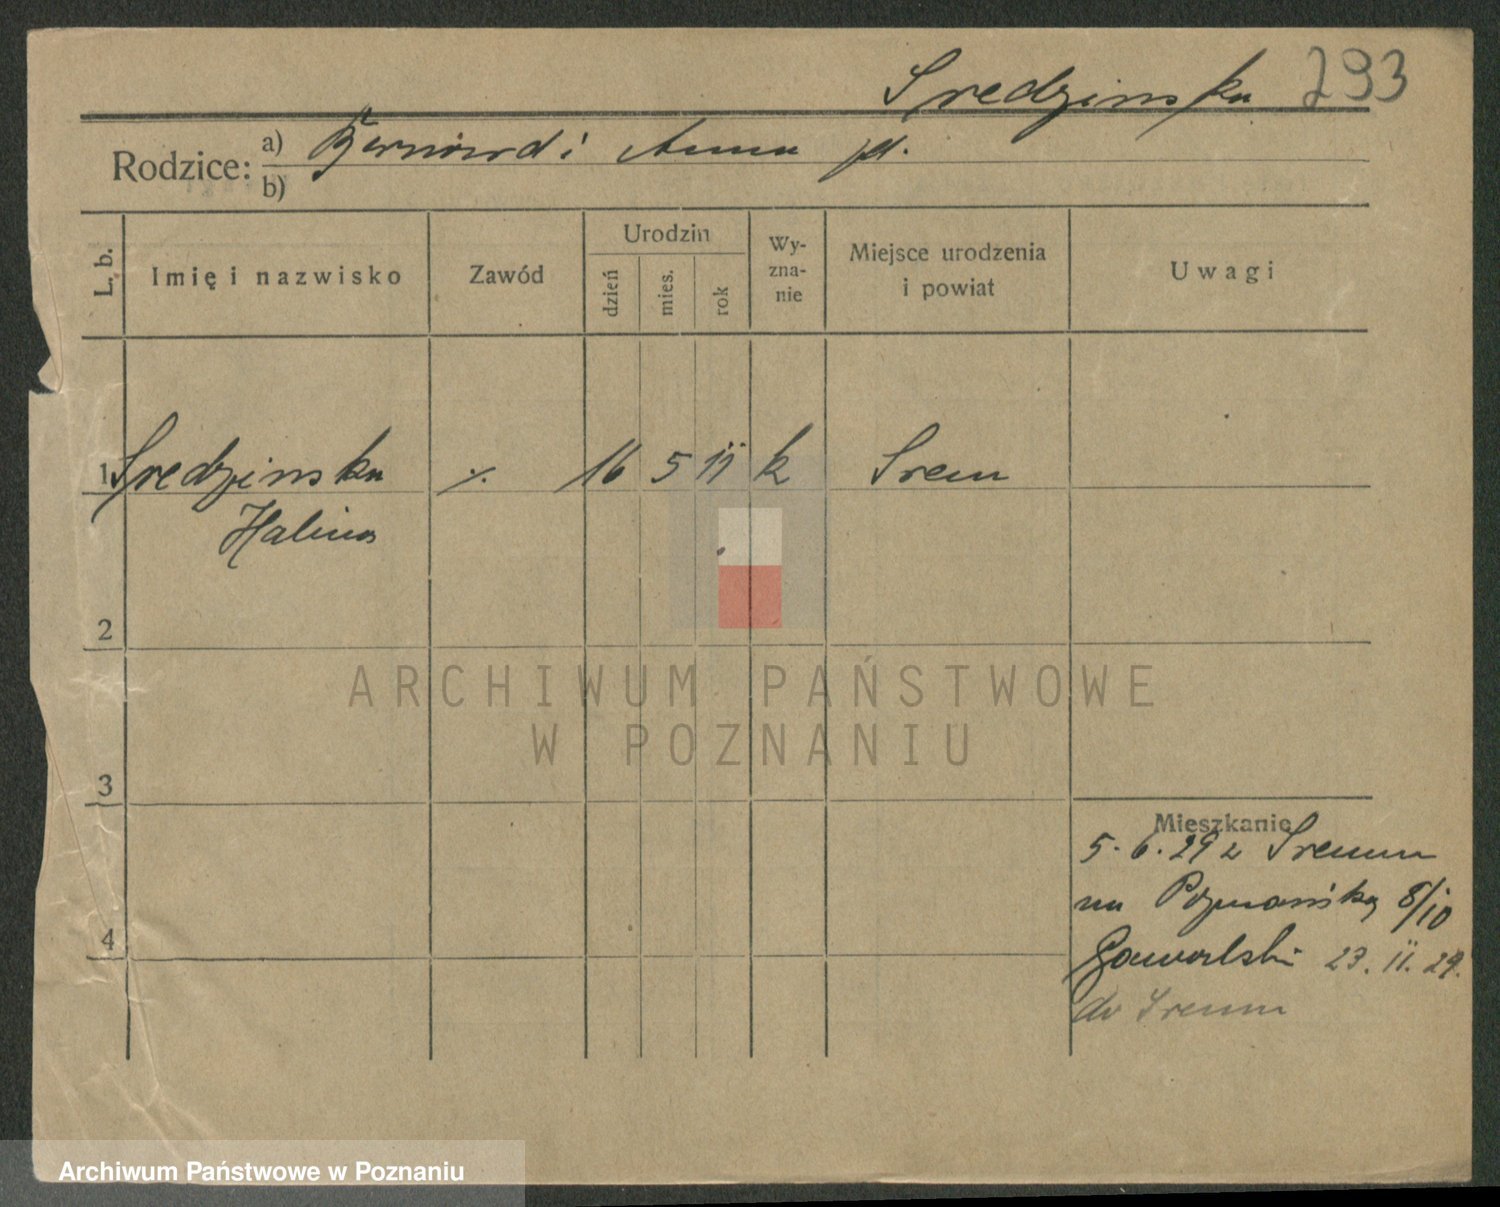 Sredzinska 293
Rodzice: a) Bernard i Anna pl.
b)
L. b. Imię i nazwisko Zawód Urodzin dzień mies. rok Wyznanie Miejsce urodzenia i powiat Uwagi
1 Sredzinska ·/. 16 5 11 k Srem
Halina
2
3
4
Mieszkanie
5. 6. 29 z Sremu
na Poznańską 8/10
23. 11. 29.
do Sremu
ARCHIWUM PAŃSTWOWE
W POZNANIU
Archiwum Państwowe w Poznaniu